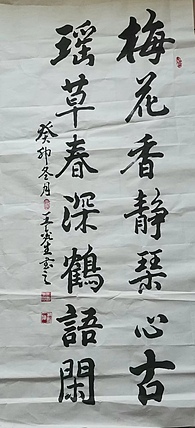 梅花香静琴心古
瑶草春深鶴語閑
癸卯冬月